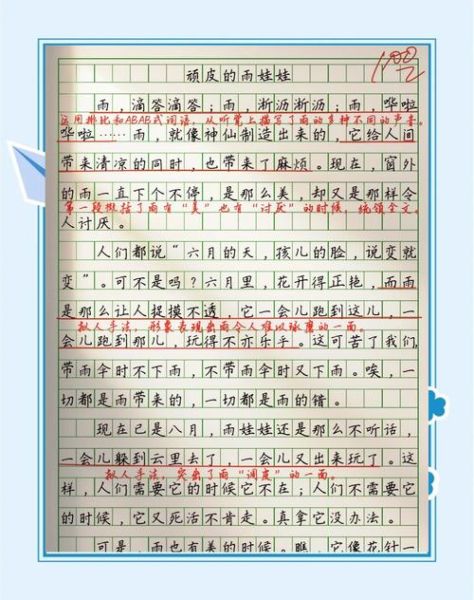 100
顽皮的雨娃娃
雨，滴答滴答；雨，淅沥淅沥；雨，哗啦
运用排比和ABAB式词语，从听觉上描写了雨的多种不同的声音。
哗啦……雨，就像神仙制造出来的，它给人间
带来清凉的同时，也带来了麻烦。现在，窗外
的雨一直下个不停，是那么美，却又是那样令
第一段概括了雨有“美”也有“讨厌”的时候，统领全文。
人讨厌。
人们都说“六月的天，孩儿的脸，说变就
变”。可不是吗？六月里，花开得正艳，而雨
是那么让人捉摸不透，它一会儿跑到这儿，一
拟人手法，形象表现出雨令人难以琢磨的一面。
会儿跑到那儿，玩得不亦乐乎。这可苦了我们，
带雨伞时不下雨，不带雨伞时又下雨。唉，一
切都是雨带来的，一切都是雨的错。
现在已是八月，雨娃娃还是那么不听话，
一会儿躲到云里去了，一会儿又出来玩了。这
拟人手法，突出了雨“调皮”的一面。
样，人们需要它的时候它不在；人们不需要它
的时候，它又死活不肯走。真拿它没办法。
可是，雨也有美的时候。瞧，它像花针一